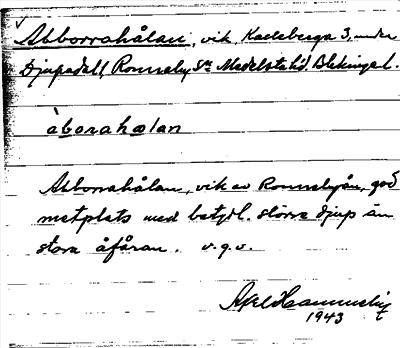 Abborrahålan, vik, Karlsberga 3, under
Djupadal, Ronneby Sn Medelsta hd. Blekinge l.
àborahølan
Abborrahålan, vik av Ronnebyån, god
metplats med betydl. större djup än
stora åfåran. v.g.v.
Axel
1943